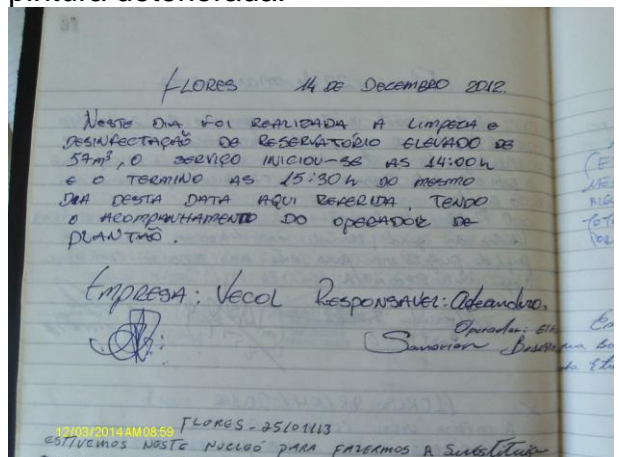 pintura deteriorada.
FLORES 14 DE DECEMBRO 2012.
NESTE DIA FOI REALIZADA A LIMPEZA E
DESINFECTAÇÃO DE RESERVATÓRIO ELEVADO DE
57m³, O SERVIÇO INICIOU-SE AS 14:00h
E O TERMINO AS 15:30h DO MESMO
DIA DESTA DATA AQUI REFERIDA, TENDO
O ACOMPANHAMENTO DO OPERADOR DE
PLANTÃO.
EMPRESA: VECOL RESPONSAVEL:
Operador:
12/03/2014 AM 08:59
FLORES - 25/01/13
ESTIVEMOS NESTE NUCLEO PARA FAZERMOS A